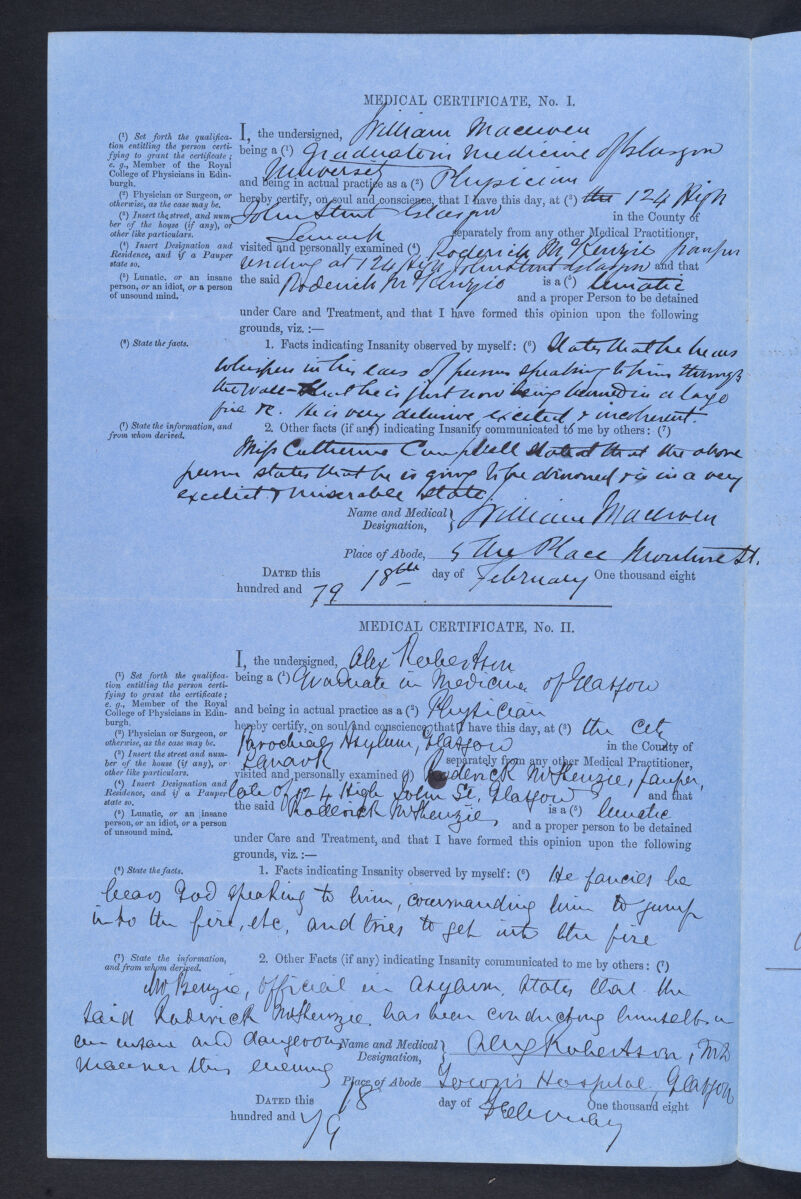 MEDICAL CERTIFICATE, No. I.
(1) Set forth the qualifica-
tion entitling the person certi-
fying to grant the certificate;
e. g., Member of the Royal
College of Physicians in Edin-
burgh.
(2) Physician or Surgeon, or
otherwise, as the case may be.
(3) Insert the street, and num-
ber of the house (if any), or
other like particulars.
(4) Insert Designation and
Residence, and if a Pauper
state so.
(5) Lunatic, or an insane
person, or an idiot, or a person
of unsound mind.
I, the undersigned, William Macewen
being a (1) Graduate in Medicine of Glasgow
University
and being in actual practice as a (2) Physician
hereby certify, on soul and conscience, that I have this day, at (3) the 124 High
John Street Glasgow in the County of
Lanark separately from any other Medical Practitioner,
visited and personally examined (4) Roderick McKenzie pauper
residing at 124 High John Street Glasgow and that
the said Roderick McKenzie is a (5) lunatic
and a proper Person to be detained
under Care and Treatment, and that I have formed this opinion upon the following
grounds, viz. :—
(6) State the facts.
1. Facts indicating Insanity observed by myself: (6) States that he hears
whispers in his ears of persons speaking to him through
the wall - that he is just now being burned in a large
fire &c. He is very delusive, excited & incoherent.
(7) State the information, and
from whom derived.
2. Other facts (if any) indicating Insanity communicated to me by others: (7)
Miss Catherine Campbell stated that the above
person states that he is going to be drowned & is in a very
excited & miserable state
Name and Medical
Designation, William Macewen
Place of Abode, 5 The Place St.
DATED this 18th day of February One thousand eight
hundred and 79
MEDICAL CERTIFICATE, No. II.
(1) Set forth the qualifica-
tion entitling the person certi-
fying to grant the certificate;
e. g., Member of the Royal
College of Physicians in Edin-
burgh.
(2) Physician or Surgeon, or
otherwise, as the case may be.
(3) Insert the street and num-
ber of the house (if any), or
other like particulars.
(4) Insert Designation and
Residence, and if a Pauper
state so.
(5) Lunatic, or an insane
person, or an idiot, or a person
of unsound mind.
I, the undersigned, Alex Robertson
being a (1) Graduate in Medicine of Glasgow
and being in actual practice as a (2) Physician
hereby certify, on soul and conscience, that I have this day, at (3) the City
Parochial Asylum, Glasgow in the County of
Lanark separately from any other Medical Practitioner,
visited and personally examined (4) Roderick McKenzie, pauper,
late of 124 High John St. Glasgow and that
the said Roderick McKenzie, is a (5) lunatic
and a proper person to be detained
under Care and Treatment, and that I have formed this opinion upon the following
grounds, viz. :—
(6) State the facts.
1. Facts indicating Insanity observed by myself: (6) He fancies he
hears God speaking to him, commanding him to jump
into the fire, etc, and tries to get into the fire
(7) State the information,
and from whom derived.
2. Other Facts (if any) indicating Insanity communicated to me by others: (7)
McKenzie, official in asylum, states that the
said Roderick McKenzie has been conducting himself in
an insane and dangerous
manner this evening
Name and Medical
Designation, Alex Robertson, MD
Place of Abode Hospital, Glasgow
DATED this 18 day of February One thousand eight
hundred and 79